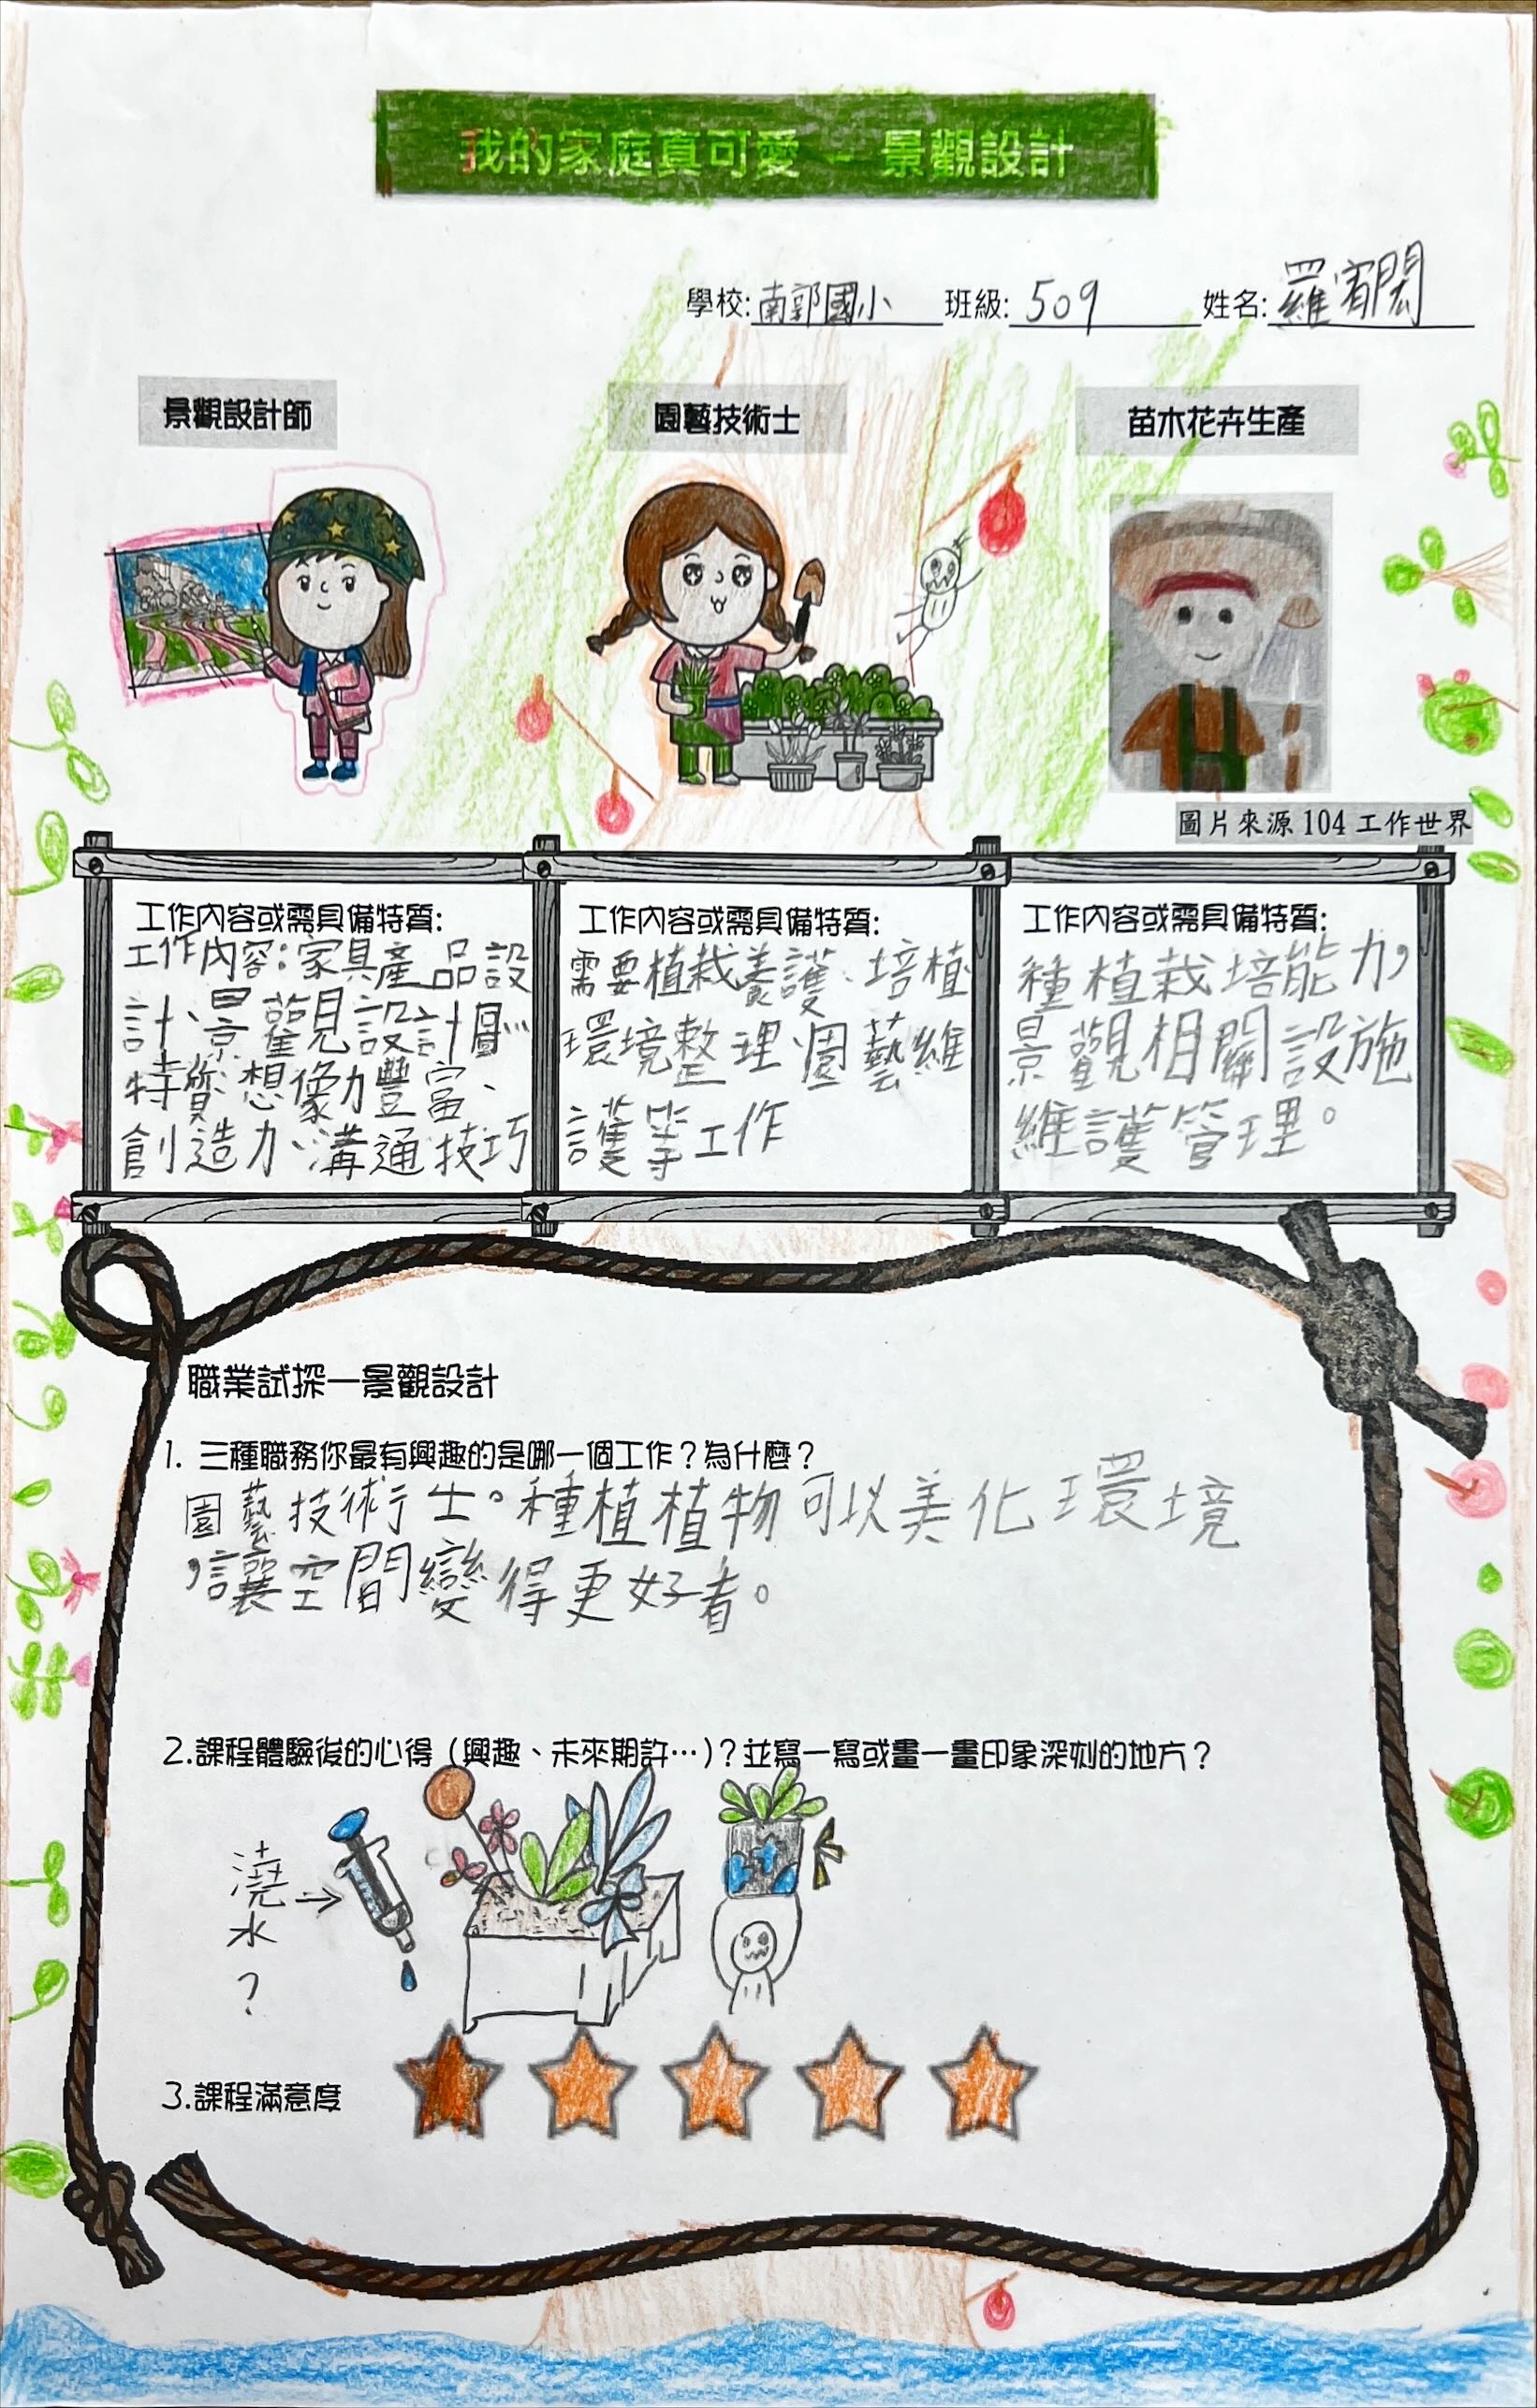 我的家庭真可愛 - 景觀設計
學校:南郭國小 班級:509 姓名:羅宥閎
景觀設計師
園藝技術士
苗木花卉生產
圖片來源 104 工作世界
工作內容或需具備特質:
工作內容:家具產品設
計、景觀設計圖
特質:想像力豐富、
創造力、溝通技巧
工作內容或需具備特質:
需要植栽養護、培植
環境整理、園藝維
護等工作
工作內容或需具備特質:
種植栽培能力,
景觀相關設施
維護管理。
職業試探—景觀設計
1. 三種職務你最有興趣的是哪一個工作?為什麼?
園藝技術士。種植植物可以美化環境
,讓空間變得更好看。
2.課程體驗後的心得(興趣、未來期許…)?並寫一寫或畫一畫印象深刻的地方?
澆水?
3.課程滿意度